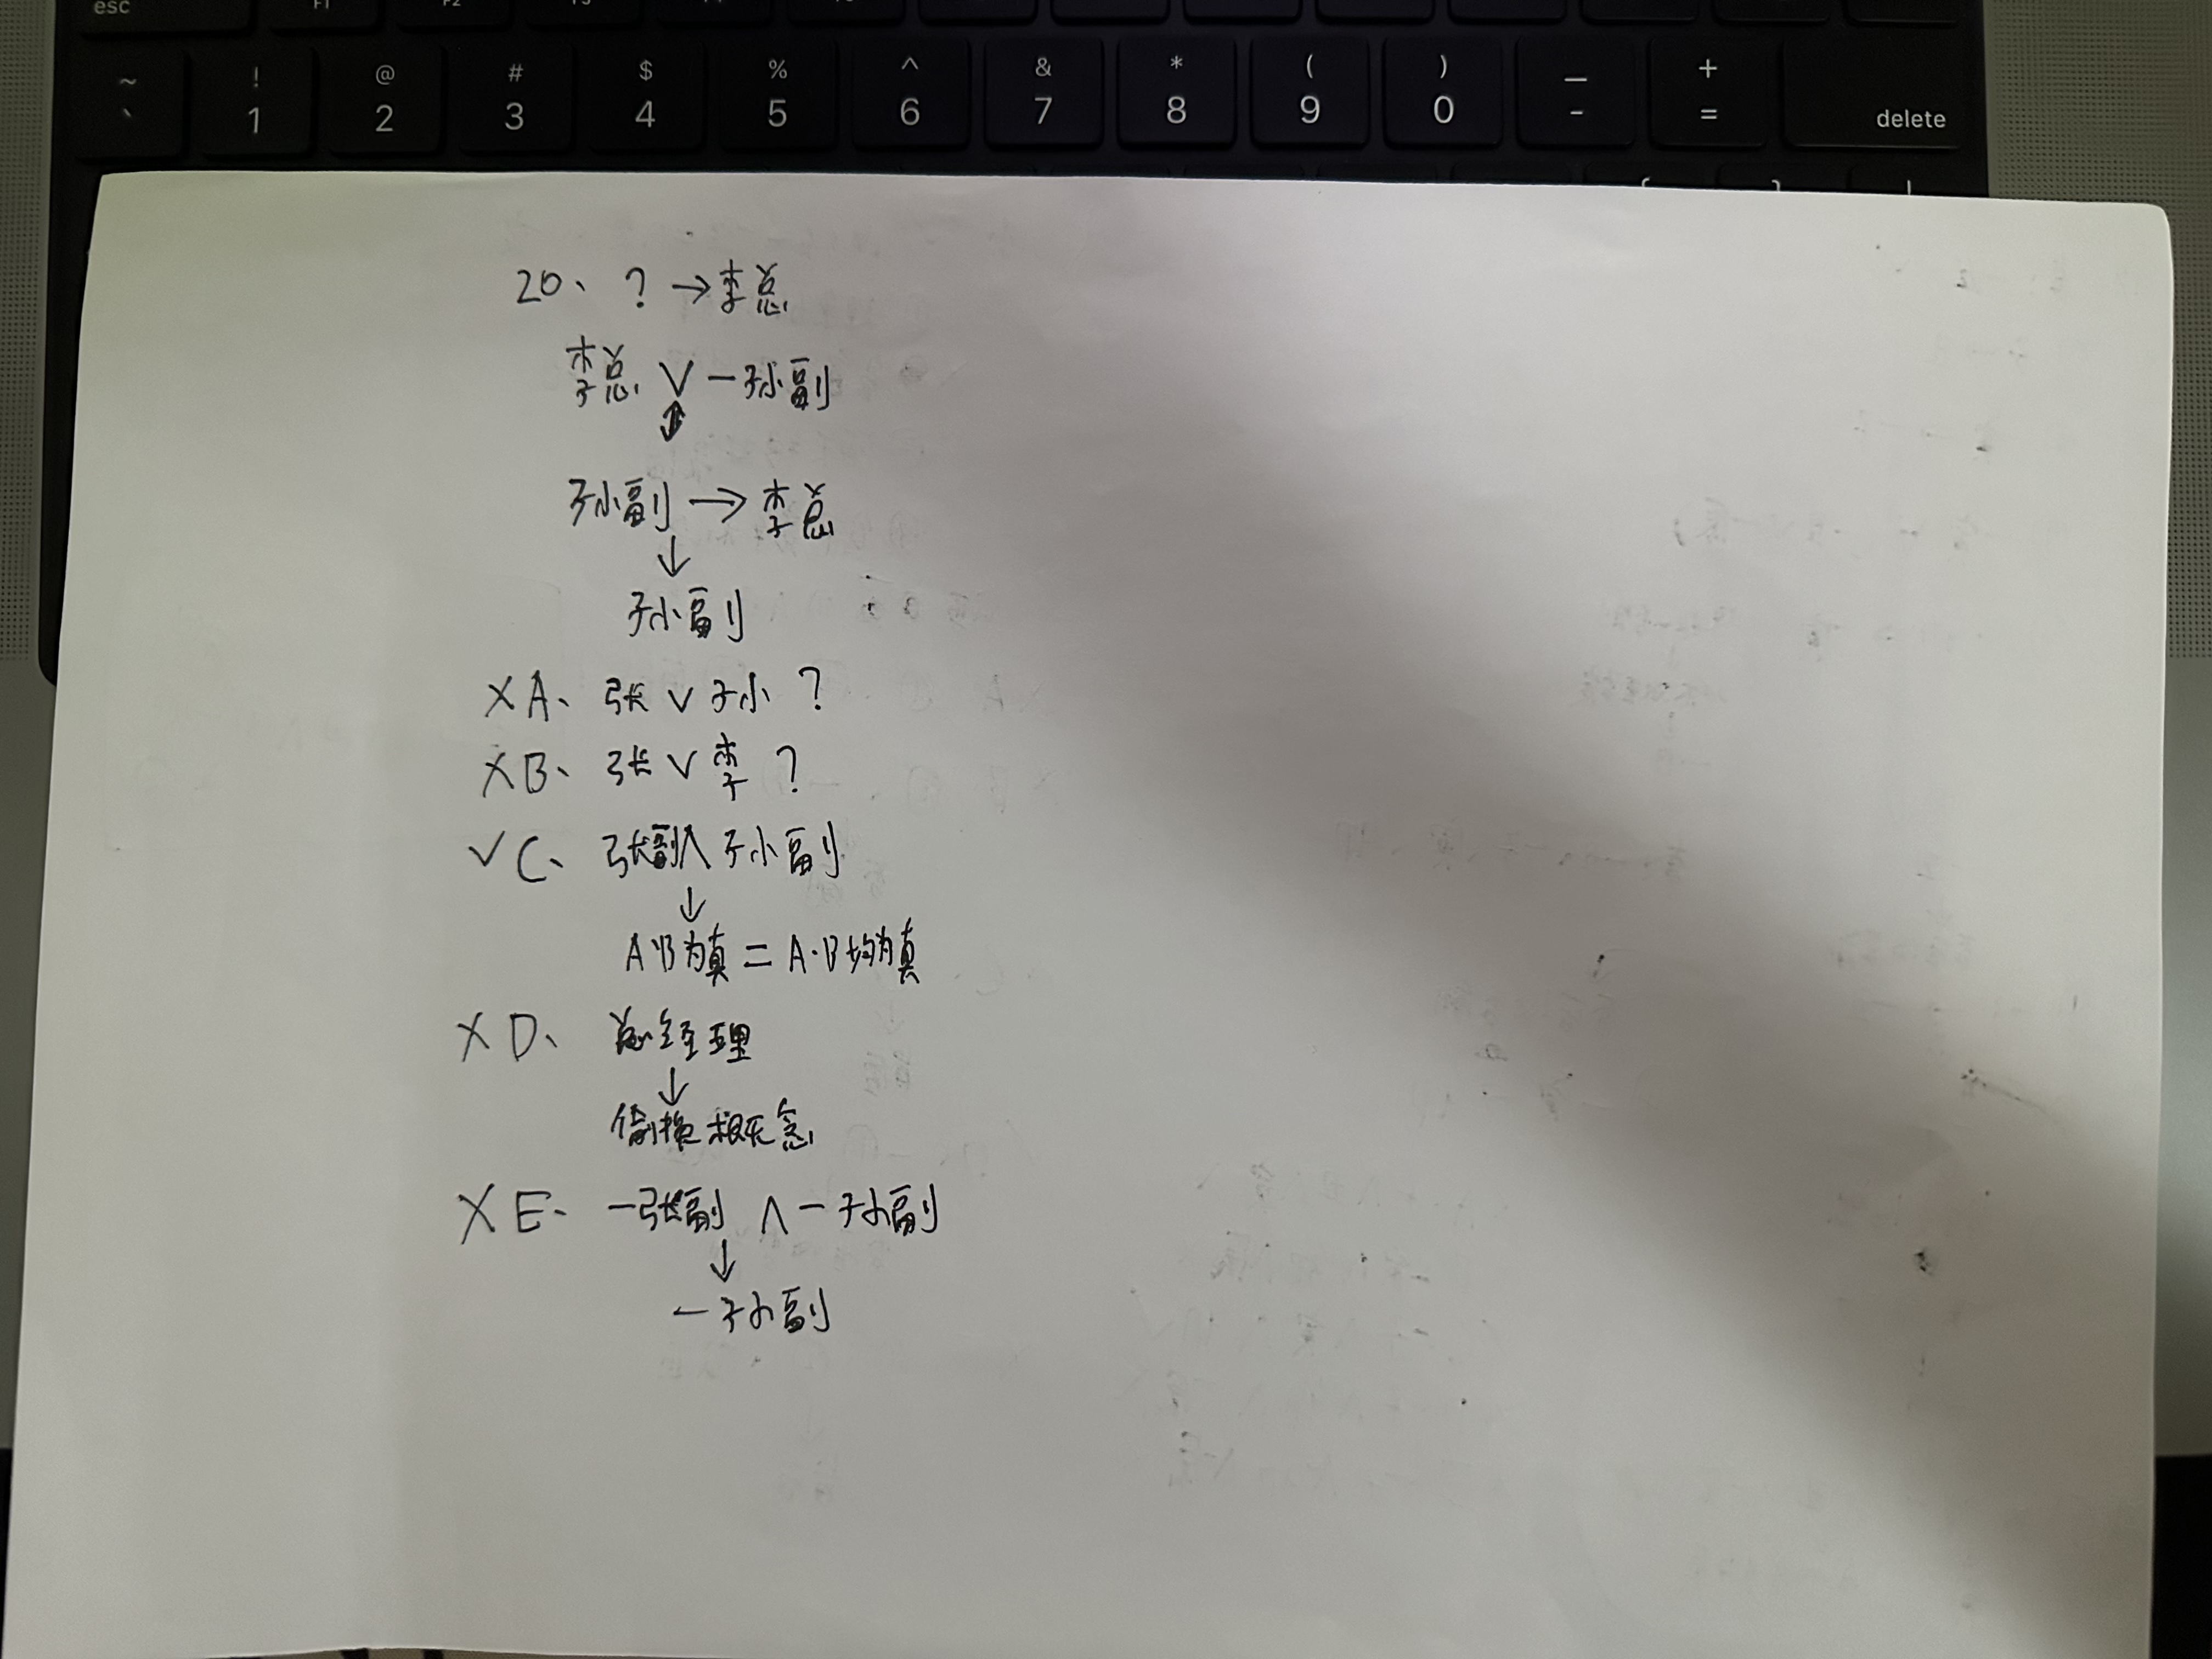 esc F1 F2 F3
~ ! @ # $ % ^ & * ( ) _ +
` 1 2 3 4 5 6 7 8 9 0 - = delete
{ } |
20、? → 李总
李总 ∨ ¬孙副
↕
孙副 → 李总
↓
孙副
× A、张 ∨ 孙 ?
× B、张 ∨ 李 ?
✓ C、张副 ∧ 孙副
↓
A·B为真 = A·B均为真
× D、总经理
↓
偷换概念
× E、¬张副 ∧ ¬孙副
↓
¬孙副